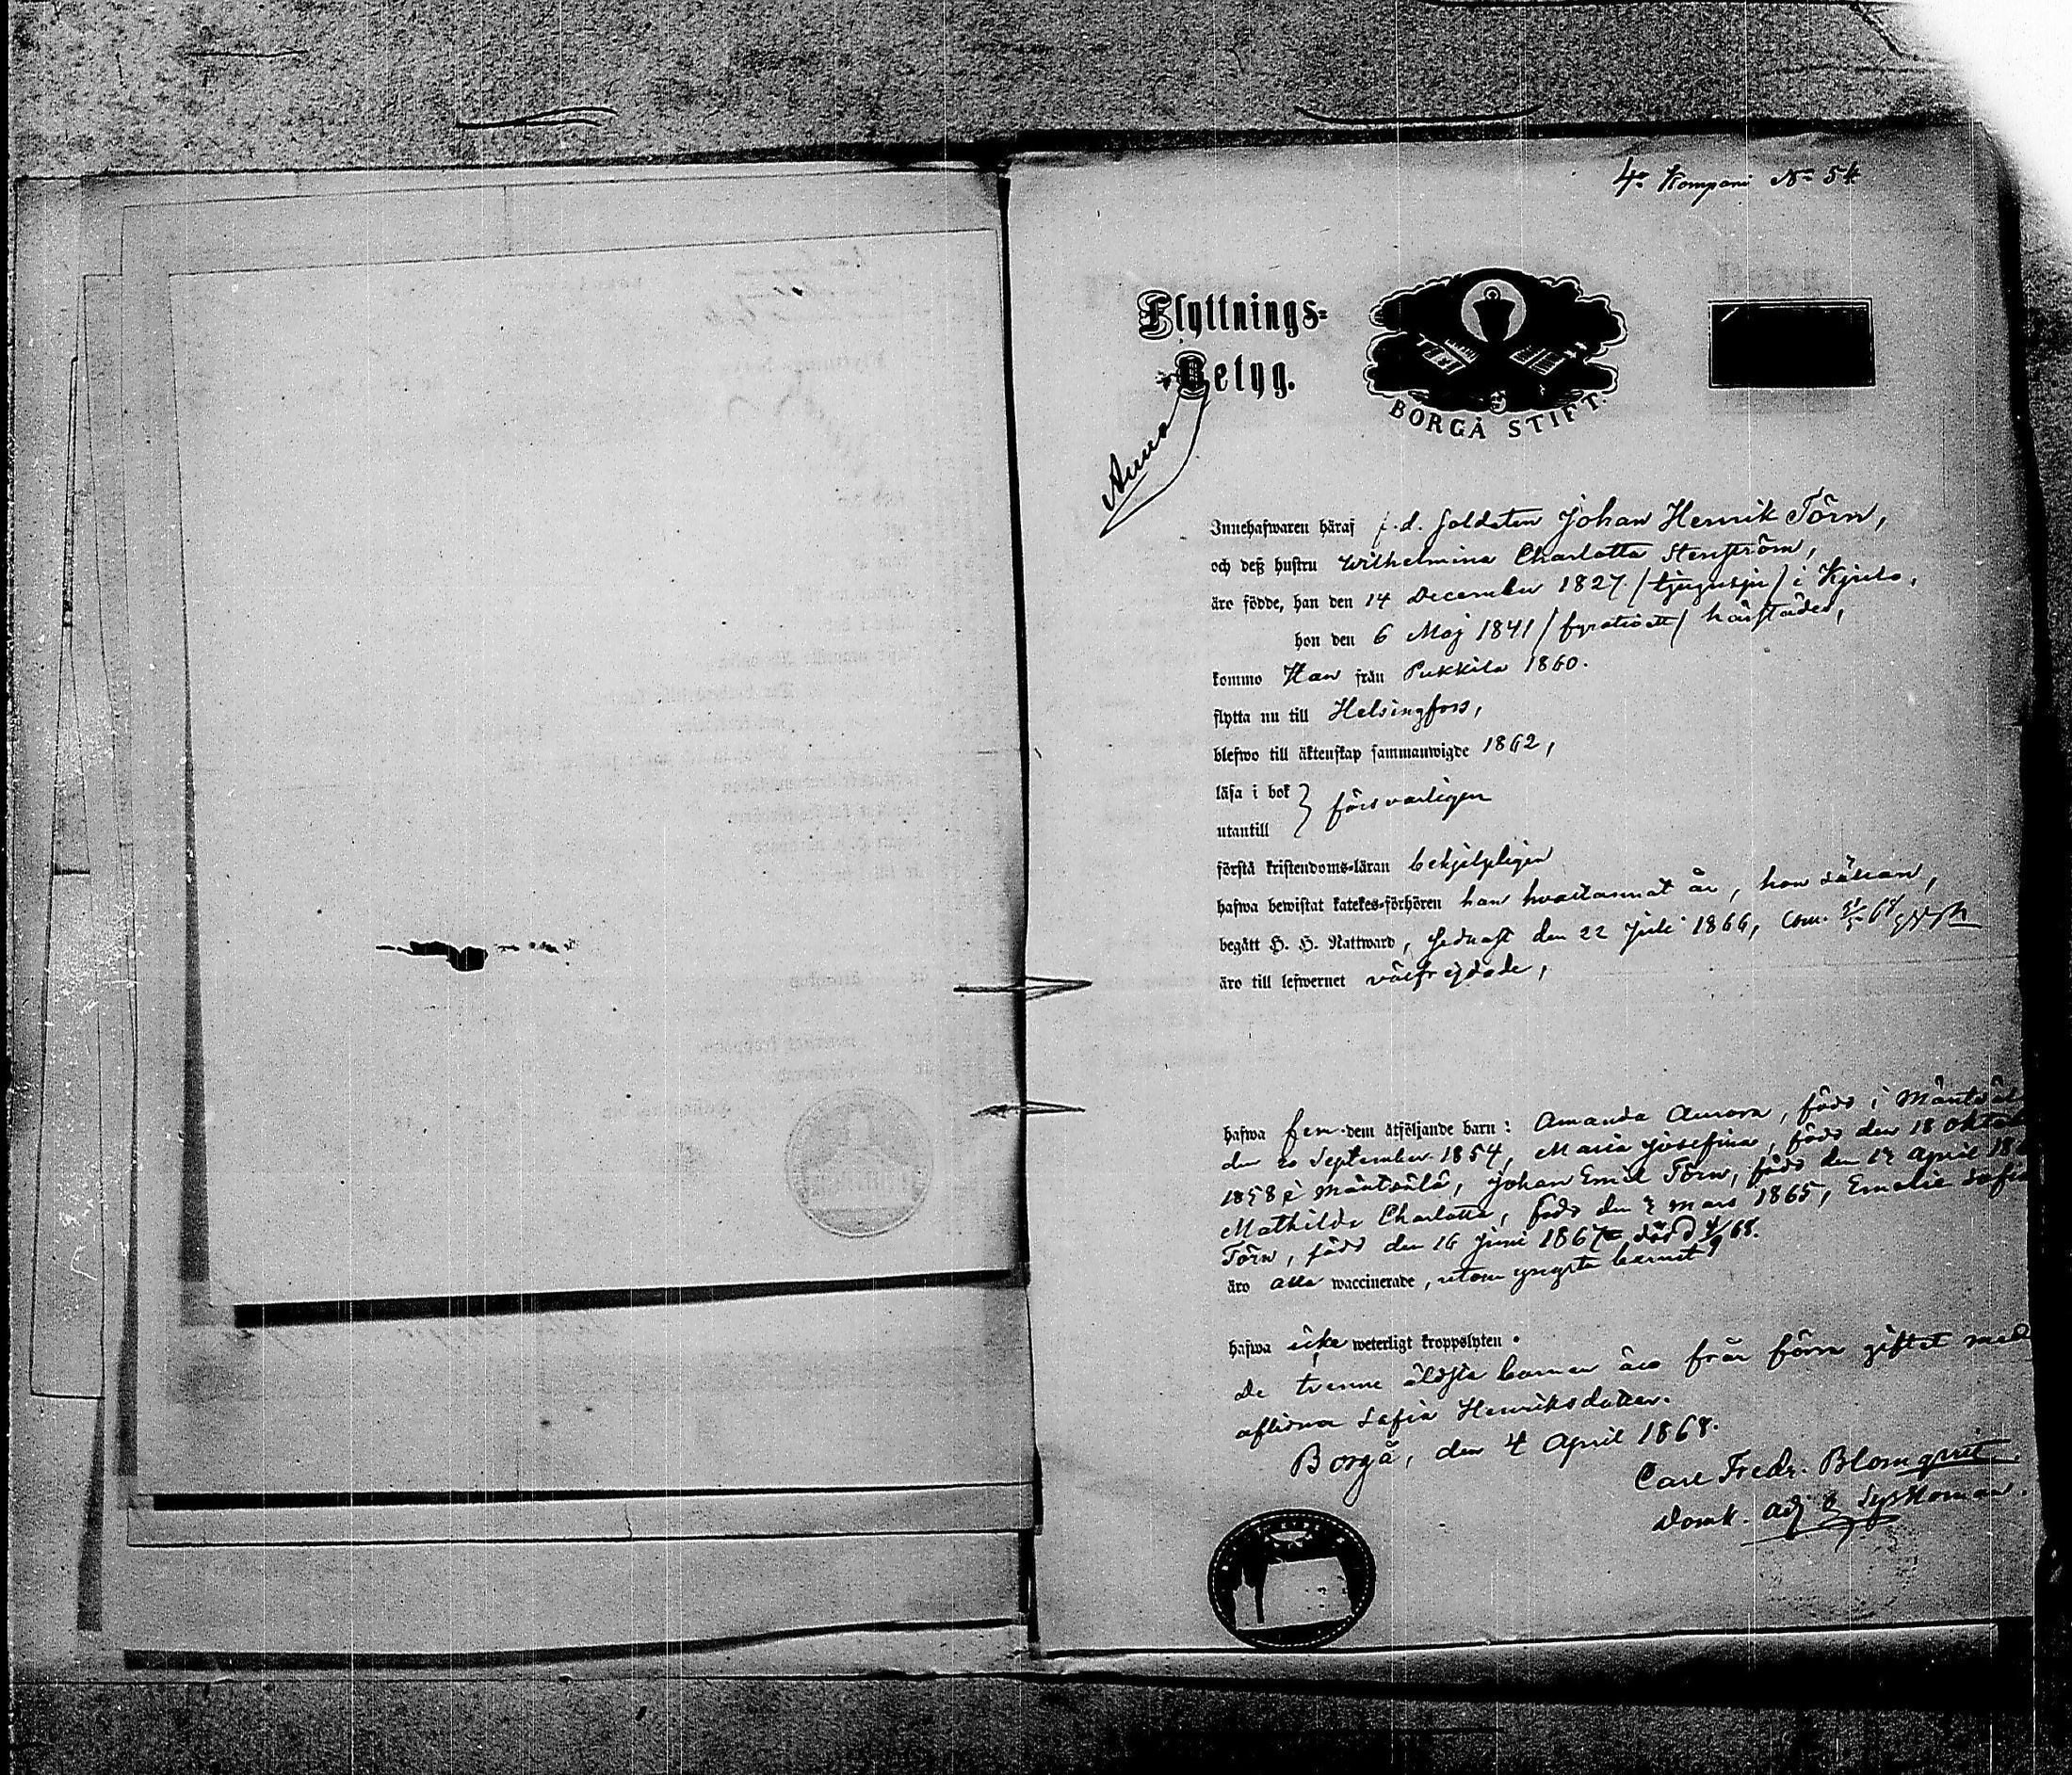 4e Kompani No 54
Flyttnings-
Betyg.
BORGÅ STIFT.
Anno
Innehafwaren häraf f.d. Soldaten Johan Henrik Törn,
och deß hustru Wilhelmina Charlotta Stenström,
äro födde, han den 14 December 1827 /tjugusju/ i
hon den 6 Maj 1841 /fyratioett/ härstädes,
kommo Han från Pukkila 1860.
flytta nu till Helsingfors,
blefwo till äktenskap sammanwigde 1862,
läsa i bok } försvarligen
utantill
förstå kristendoms-läran behjelpligen
hafwa bewistat katekes-förhören han hvartannat år, hon sällan,
begått H. H. Nattward, senast den 22 Juli 1866,
äro till lefwernet välfrejdade,
hafwa fem dem åtföljande barn: Amanda Aurora, född i
den 20 September 1854, Maria Josefina, född den 18
1858 i Mäntsälä, Johan Emil Törn, född den 17 April
Mathilda Charlotta, född den 2 mars 1865, Emelie Sofia
Törn, född den 16 Juni 1867 död
äro alla waccinerade, utom yngsta barnet
hafwa icke weterligt kroppslyten.
De trenne äldsta barnen äro från förra giftet med
aflidna Sofia Henriksdotter.
Borgå, den 4 April 1868.
Carl Fredr. Blomqvist
Domk. adj. & Sysloman.